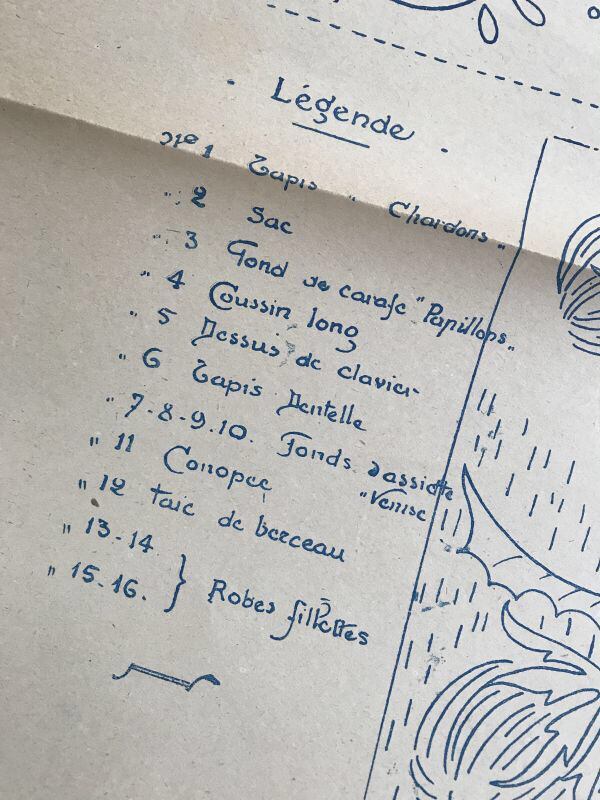 Légende
Nº 1 Tapis " Chardons "
" 2 Sac
" 3 Fond de carafe "Papillons"
" 4 Coussin long
" 5 Dessus de clavier
" 6 Tapis Dentelle
" 7-8-9.10. Fonds d'assiette
"Venise"
" 11 Conopée
" 12 taie de berceau
" 13-14
" 15-16. } Robes fillettes